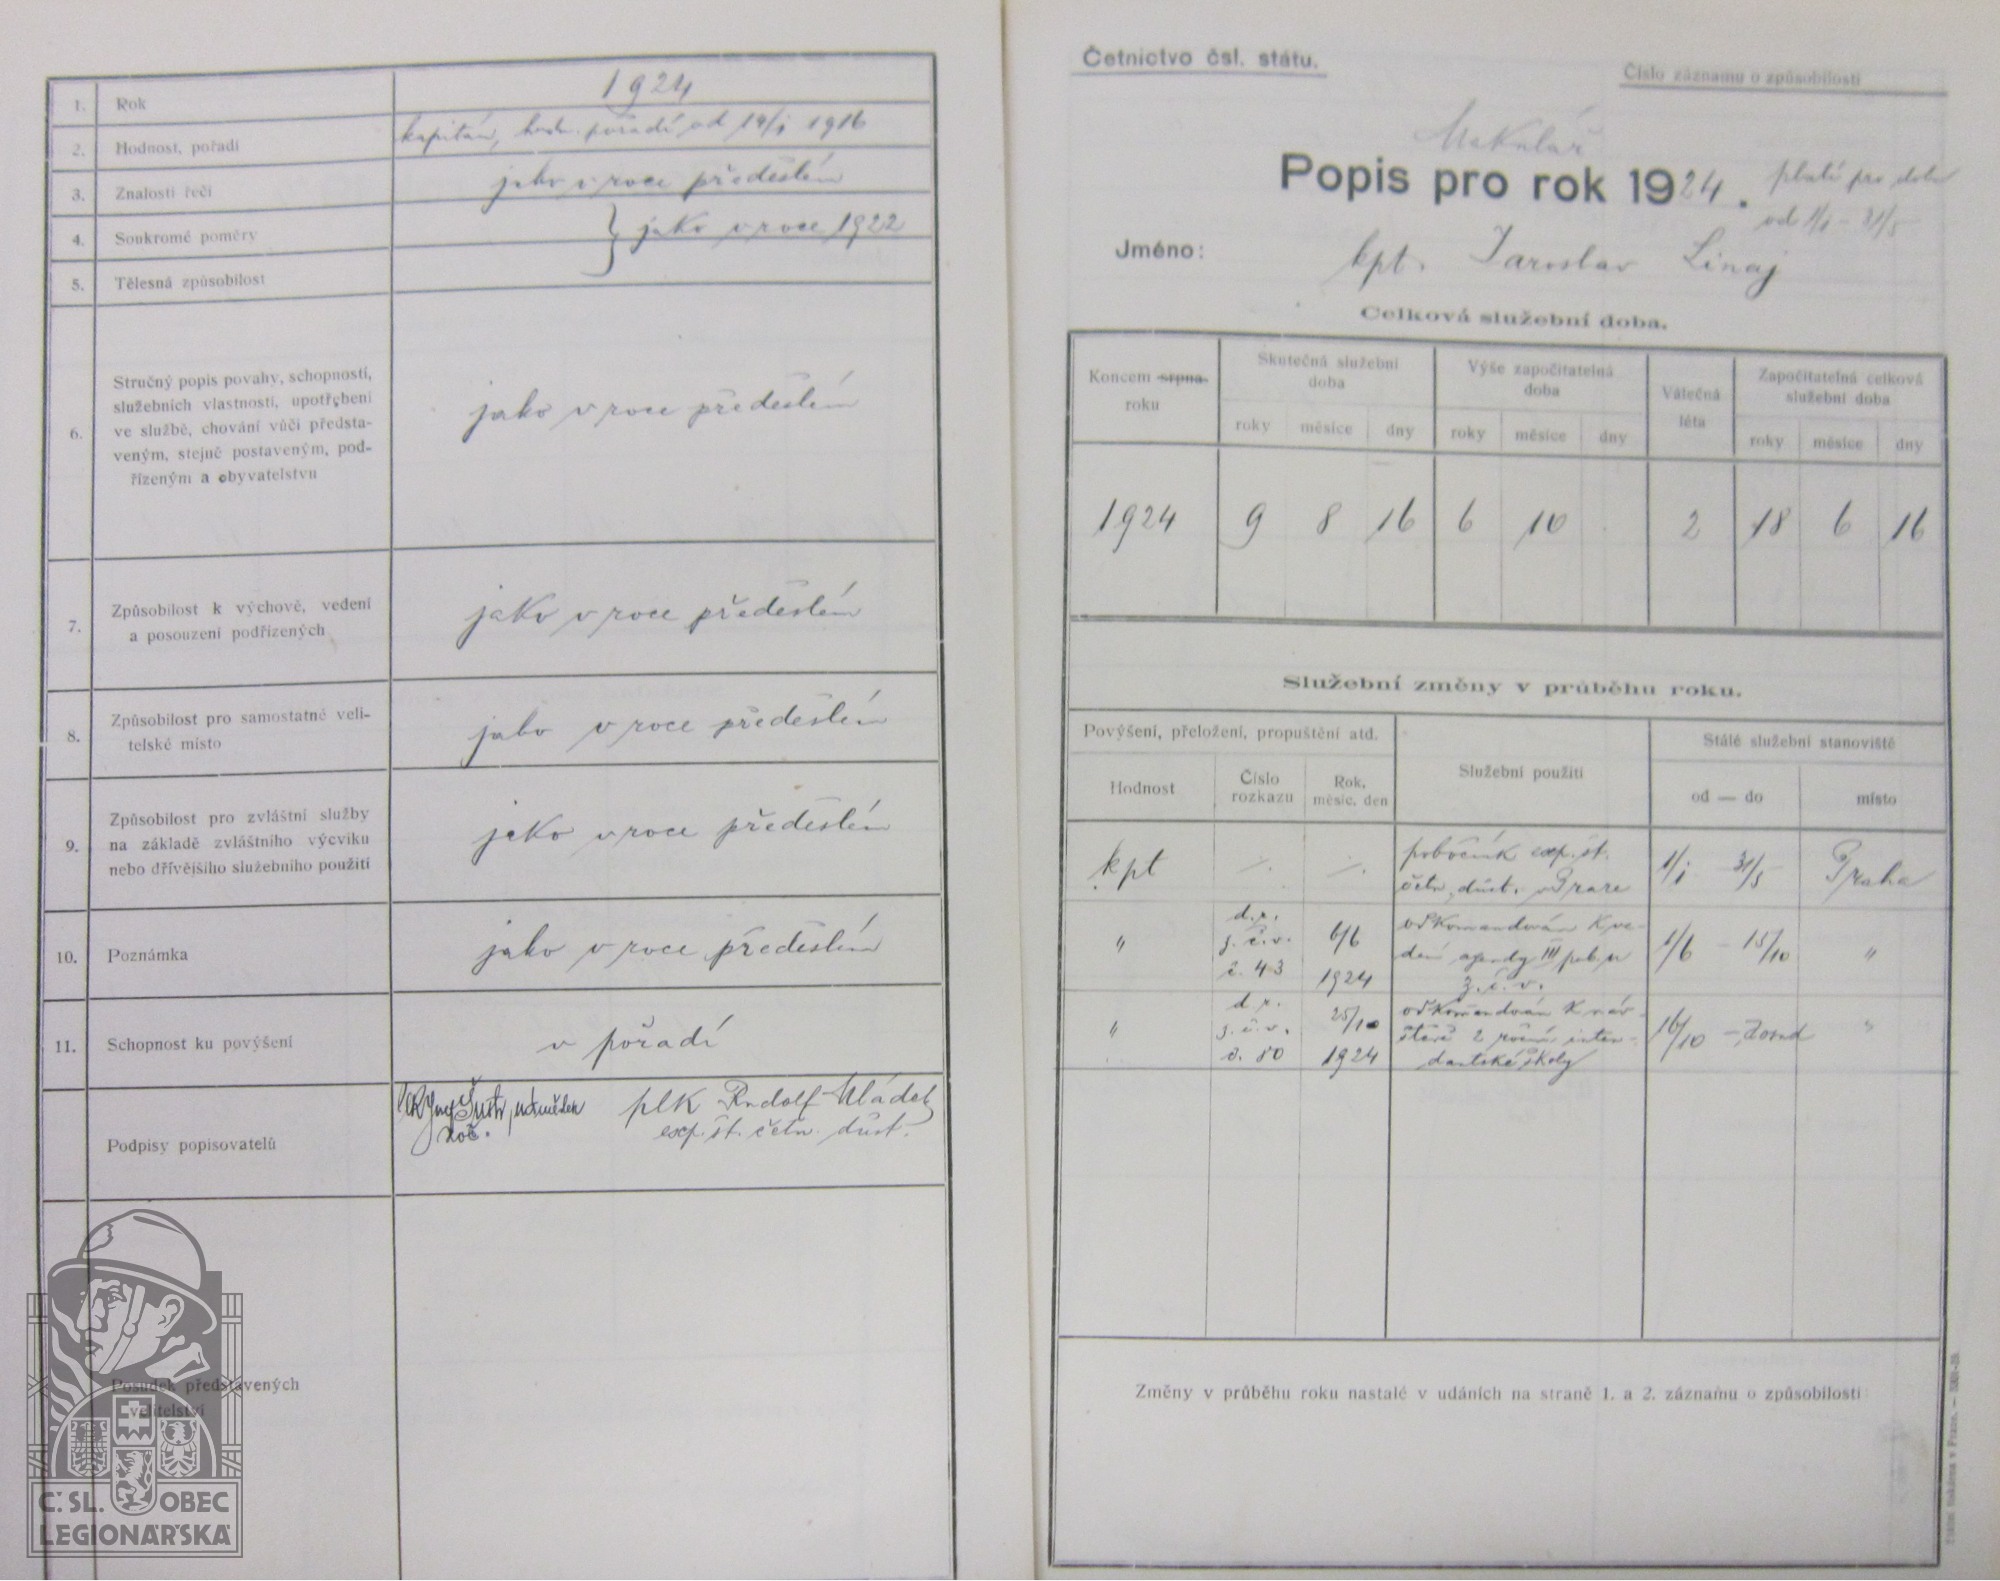 1. Rok 1924
2. Hodnost, pořadí kapitán, hodn. pořadí od 19/I 1916
3. Znalosti řečí jako v roce předešlém
4. Soukromé poměry } jako v roce 1922
5. Tělesná způsobilost
Stručný popis povahy, schopností,
služebních vlastností, upotřebení
6. ve službě, chování vůči předsta-
veným, stejně postaveným, pod-
řízeným a obyvatelstvu
jako v roce předešlém
7. Způsobilost k výchově, vedení
a posouzení podřízených
jako v roce předešlém
8. Způsobilost pro samostatné veli-
telské místo
jako v roce předešlém
Způsobilost pro zvláštní služby
9. na základě zvláštního výcviku
nebo dřívějšího služebního použití
jako v roce předešlém
10. Poznámka jako v roce předešlém
11. Schopnost ku povýšení v pořadí
Podpisy popisovatelů
plk Rudolf Hládek
exp. st. četn. důst.
Posudek představených
velitelství
Č.SL. OBEC
LEGIONÁŘSKÁ
Četnictvo čsl. státu.
Číslo záznamu o způsobilosti
Makulář
Popis pro rok 1924. platí pro dobu
od 1/1 – 31/5
Jméno: kpt. Jaroslav Linaj
Celková služební doba.
Koncem srpna roku
Skutečná služební doba
Výše započitatelná doba
Válečná léta
Započitatelná celková služební doba
roky měsíce dny roky měsíce dny roky měsíce dny
1924 9 8 16 6 10 . 2 18 6 16
Služební změny v průběhu roku.
Povýšení, přeložení, propuštění atd.
Služební použití
Stálé služební stanoviště
Hodnost
Číslo rozkazu
Rok, měsíc, den
od — do
místo
kpt ./. ./. pobočník exp. st.
četn. důst. v Praze 1/1 – 31/5 Praha
" d.r.
z.č.v.
č. 43 6/6
1924 odkomandován k ve-
dení agendy III pob. u
z.č.v. 1/6 – 15/10 "
" d.r.
z.č.v.
č. 80 25/10
1924 odkomandován k náv-
štěvě 2 roční inten-
dantské školy 16/10 – dosud "
Změny v průběhu roku nastalé v údáních na straně 1. a 2. záznamu o způsobilosti